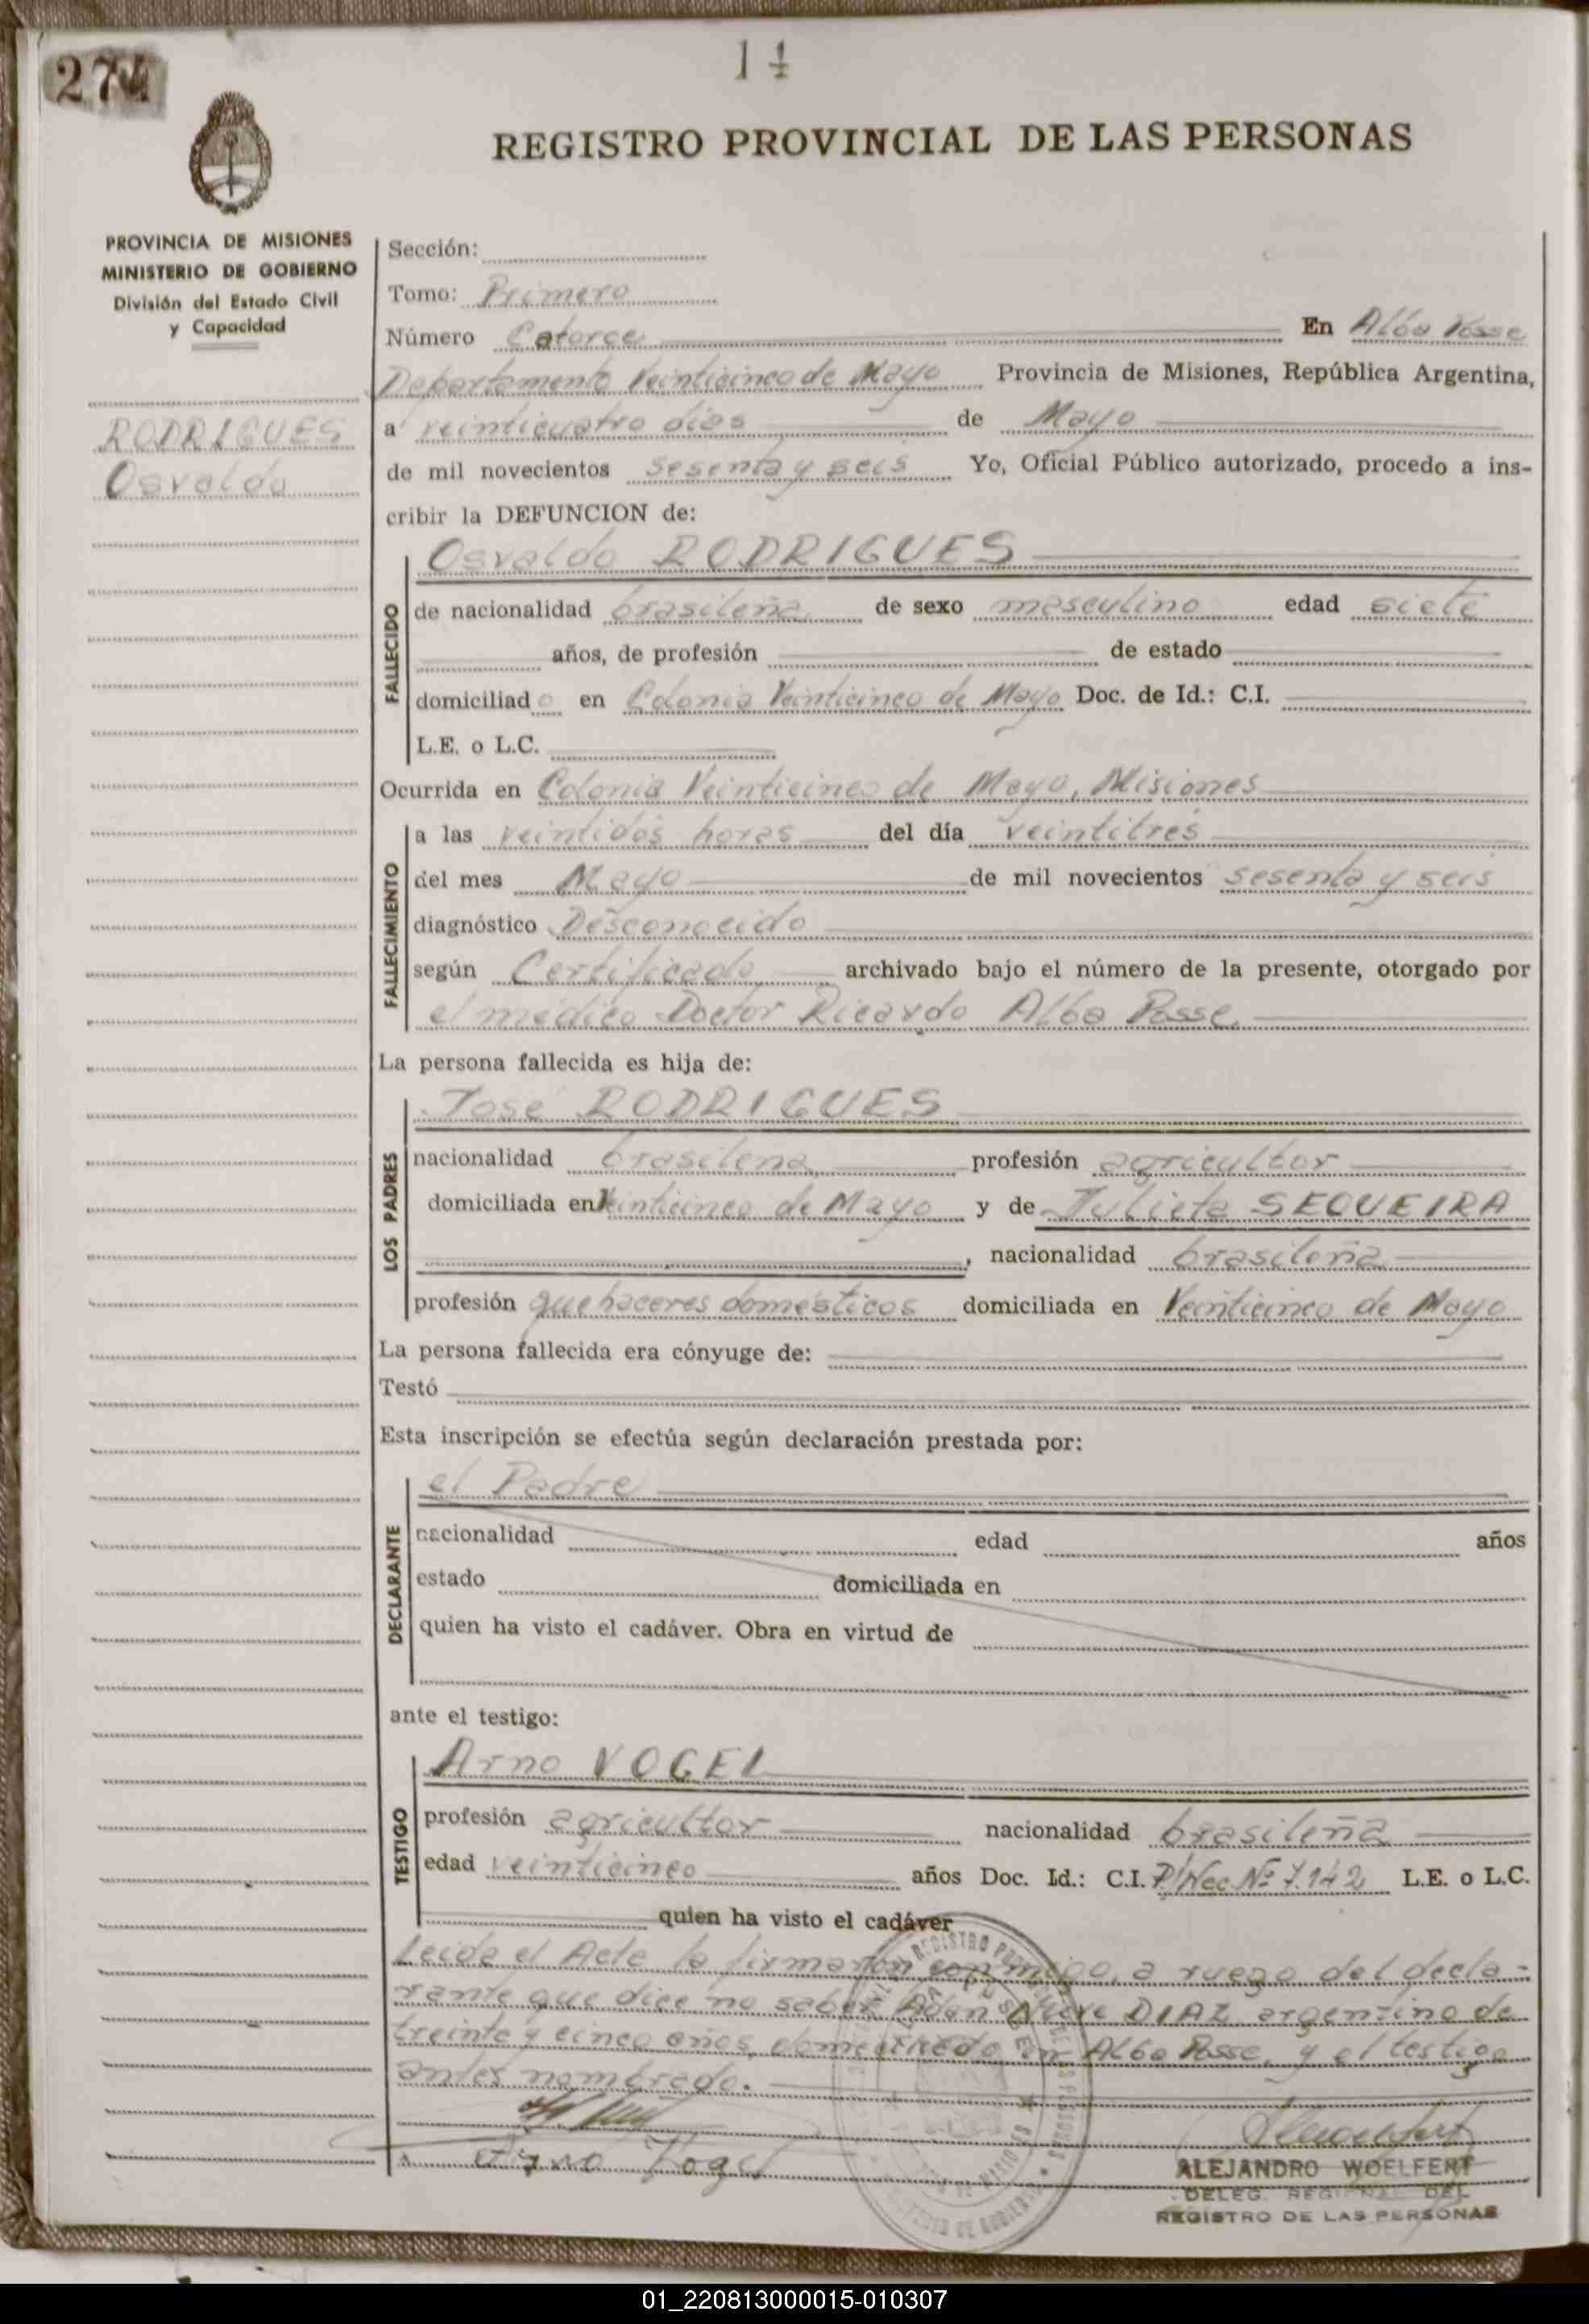 14
REGISTRO PROVINCIAL DE LAS PERSONAS
PROVINCIA DE MISIONES
MINISTERIO DE GOBIERNO
División del Estado Civil
y Capacidad
RODRIGUES
Osvaldo
Sección:
Tomo: Primero
Número Catorce En Alba Posse
Departamento Veinticinco de Mayo Provincia de Misiones, República Argentina,
a veinticuatro días de Mayo
de mil novecientos sesenta y seis Yo, Oficial Público autorizado, procedo a ins-
cribir la DEFUNCION de:
Osvaldo RODRIGUES
FALLECIDO
de nacionalidad brasileña de sexo masculino edad siete
años, de profesión de estado
domiciliado en Colonia Veinticinco de Mayo Doc. de Id.: C.I.
L.E. o L.C.
Ocurrida en Colonia Veinticinco de Mayo, Misiones
FALLECIMIENTO
a las veintidós horas del día veintitrés
del mes Mayo de mil novecientos sesenta y seis
diagnóstico Desconocido
según Certificado archivado bajo el número de la presente, otorgado por
el médico Doctor Ricardo Alba Posse.
La persona fallecida es hija de:
José RODRIGUES
LOS PADRES
nacionalidad brasileña profesión agricultor
domiciliada en Veinticinco de Mayo y de Julieta SEQUEIRA
, nacionalidad brasileña
profesión quehaceres domésticos domiciliada en Veinticinco de Mayo
La persona fallecida era cónyuge de:
Testó
Esta inscripción se efectúa según declaración prestada por:
el Padre
DECLARANTE
nacionalidad edad años
estado domiciliada en
quien ha visto el cadáver. Obra en virtud de
ante el testigo:
Arno VOGEL
TESTIGO
profesión agricultor nacionalidad brasileña
edad veinticinco años Doc. Id.: C.I. P/Nac. Nº 7.142 L.E. o L.C.
quien ha visto el cadáver
Leída el Acta la firmaron conmigo, a ruego del decla-
rante que dice no saber Adán DIAZ argentino de
treinta y cinco años, domiciliado en Alba Posse, y el testigo
antes nombrado.
Arno Vogel
ALEJANDRO WOELFERT
DELEG. REGIONAL DEL
REGISTRO DE LAS PERSONAS
01_220813000015-010307